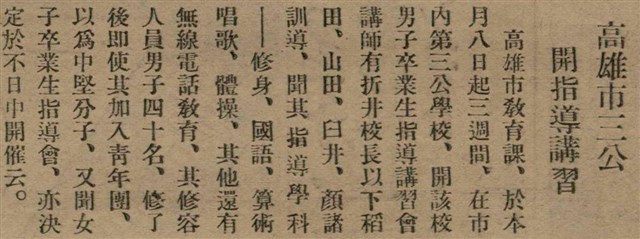 高雄市三公
開指導講習
高雄市教育課、於本
月八日起三週間、在市
內第三公學校、開該校
男子卒業生指導講習會
講師有折井校長以下稻
田、山田、臼井、顏諸
訓導、聞其指導學科
——修身、國語、算術
唱歌、體操、其他還有
無線電話教育、其修容
人員男子四十名、修了
後即使其加入青年團、
以爲中堅分子、又聞女
子卒業生指導會、亦決
定於不日中開催云。